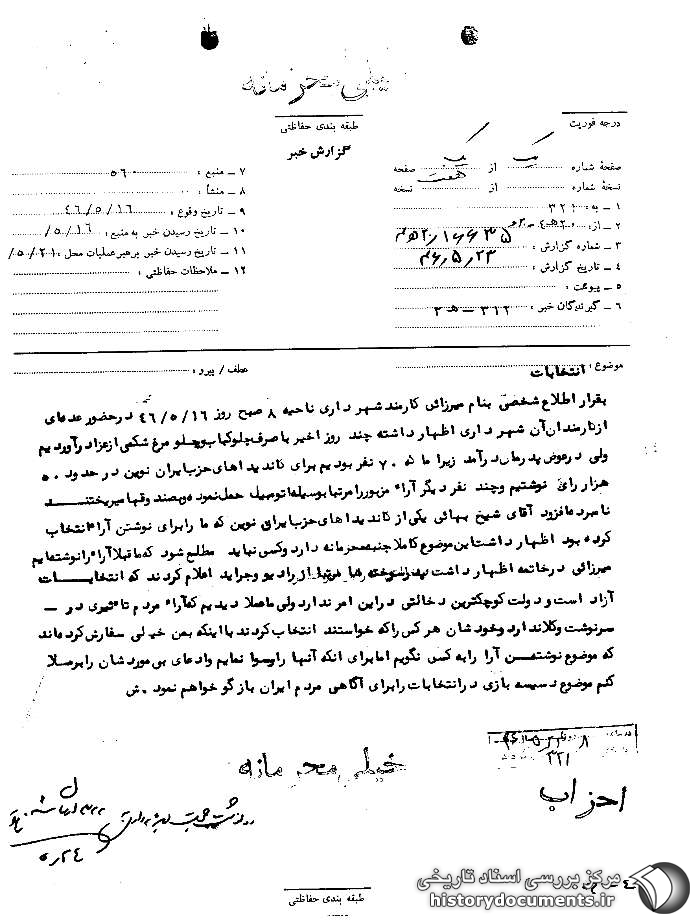 خیلی محرمانه
درجه فوریت
طبقه بندی حفاظتی
گزارش خبر
صفحهٔ شماره یک از یک صفحه
نسخهٔ شماره از هفت نسخه
۱ – به : ۳۲۱
۲ – از : ۲۰ هـ ۴
۳ – شماره گزارش : ۲۰/۱۶۶۳۵ هـ ۴
۴ – تاریخ گزارش : ۴۶/۵/۲۳
۵ – پیوست :
۶ – گیرندگان خبر : ۳۱۲ – هـ ۳
۷ – منبع : ۵۶۰
۸ – منشأ :
۹ – تاریخ وقوع : ۴۶/۵/۱۶
۱۰ – تاریخ رسیدن خبر به منبع : ۵/۱۶/
۱۱ – تاریخ رسیدن خبر برهبر عملیات محل : ۵/۲۱/
۱۲ – ملاحظات حفاظتی :
موضوع : انتخابات
عطف / پیرو :
بقرار اطلاع شخصی بنام میرزائی کارمند شهرداری ناحیه ۸ صبح روز ۴۶/۵/۱۶ در حضور عده‌ای
از کارمندان آن شهرداری اظهار داشته چند روز اخیر با صرف چلوکباب و چلو مرغ شکمی از عزا درآوردیم
ولی در عوض پدرمان درآمد زیرا ما ۷۰ نفر بودیم برای کاندیداهای حزب ایران نوین در حدود ۵۰
هزار رأی نوشتیم و چند نفر دیگر آراء مزبور را مرتبا بوسیله اتومبیل حمل نموده و بصندوقها میریختند
نامبرده افزود آقای شیخ بهائی یکی از کاندیداهای حزب ایران نوین که ما را برای نوشتن آراء انتخاب
کرده بود اظهار داشت این موضوع کاملا جنبه محرمانه دارد و کسی نباید مطلع شود که ما قبلا آراء را نوشته‌ایم
میرزائی در خاتمه اظهار داشت پدرسوخته ها مرتبا از رادیو و جراید اعلام کردند که انتخابات
آزاد است و دولت کوچکترین دخالتی در این امر ندارد ولی ما عملا دیدیم که آراء مردم تاثیری در –
سرنوشت وکلا ندارد و خودشان هر کس را که خواستند انتخاب کردند با اینکه بمن خیلی سفارش کرده‌اند
که موضوع نوشتن آرا را به کسی نگویم اما برای آنکه آنها را رسوا نمایم و ادعای بی موردشان را برملا
کنم موضوع دسیسه بازی در انتخابات را برای آگاهی مردم ایران بازگو خواهم نمود . ش
۳۲۱
خیلی محرمانه
احزاب
۵/۲۴
طبقه بندی حفاظتی
مرکز بررسی اسناد تاریخی
historydocuments.ir